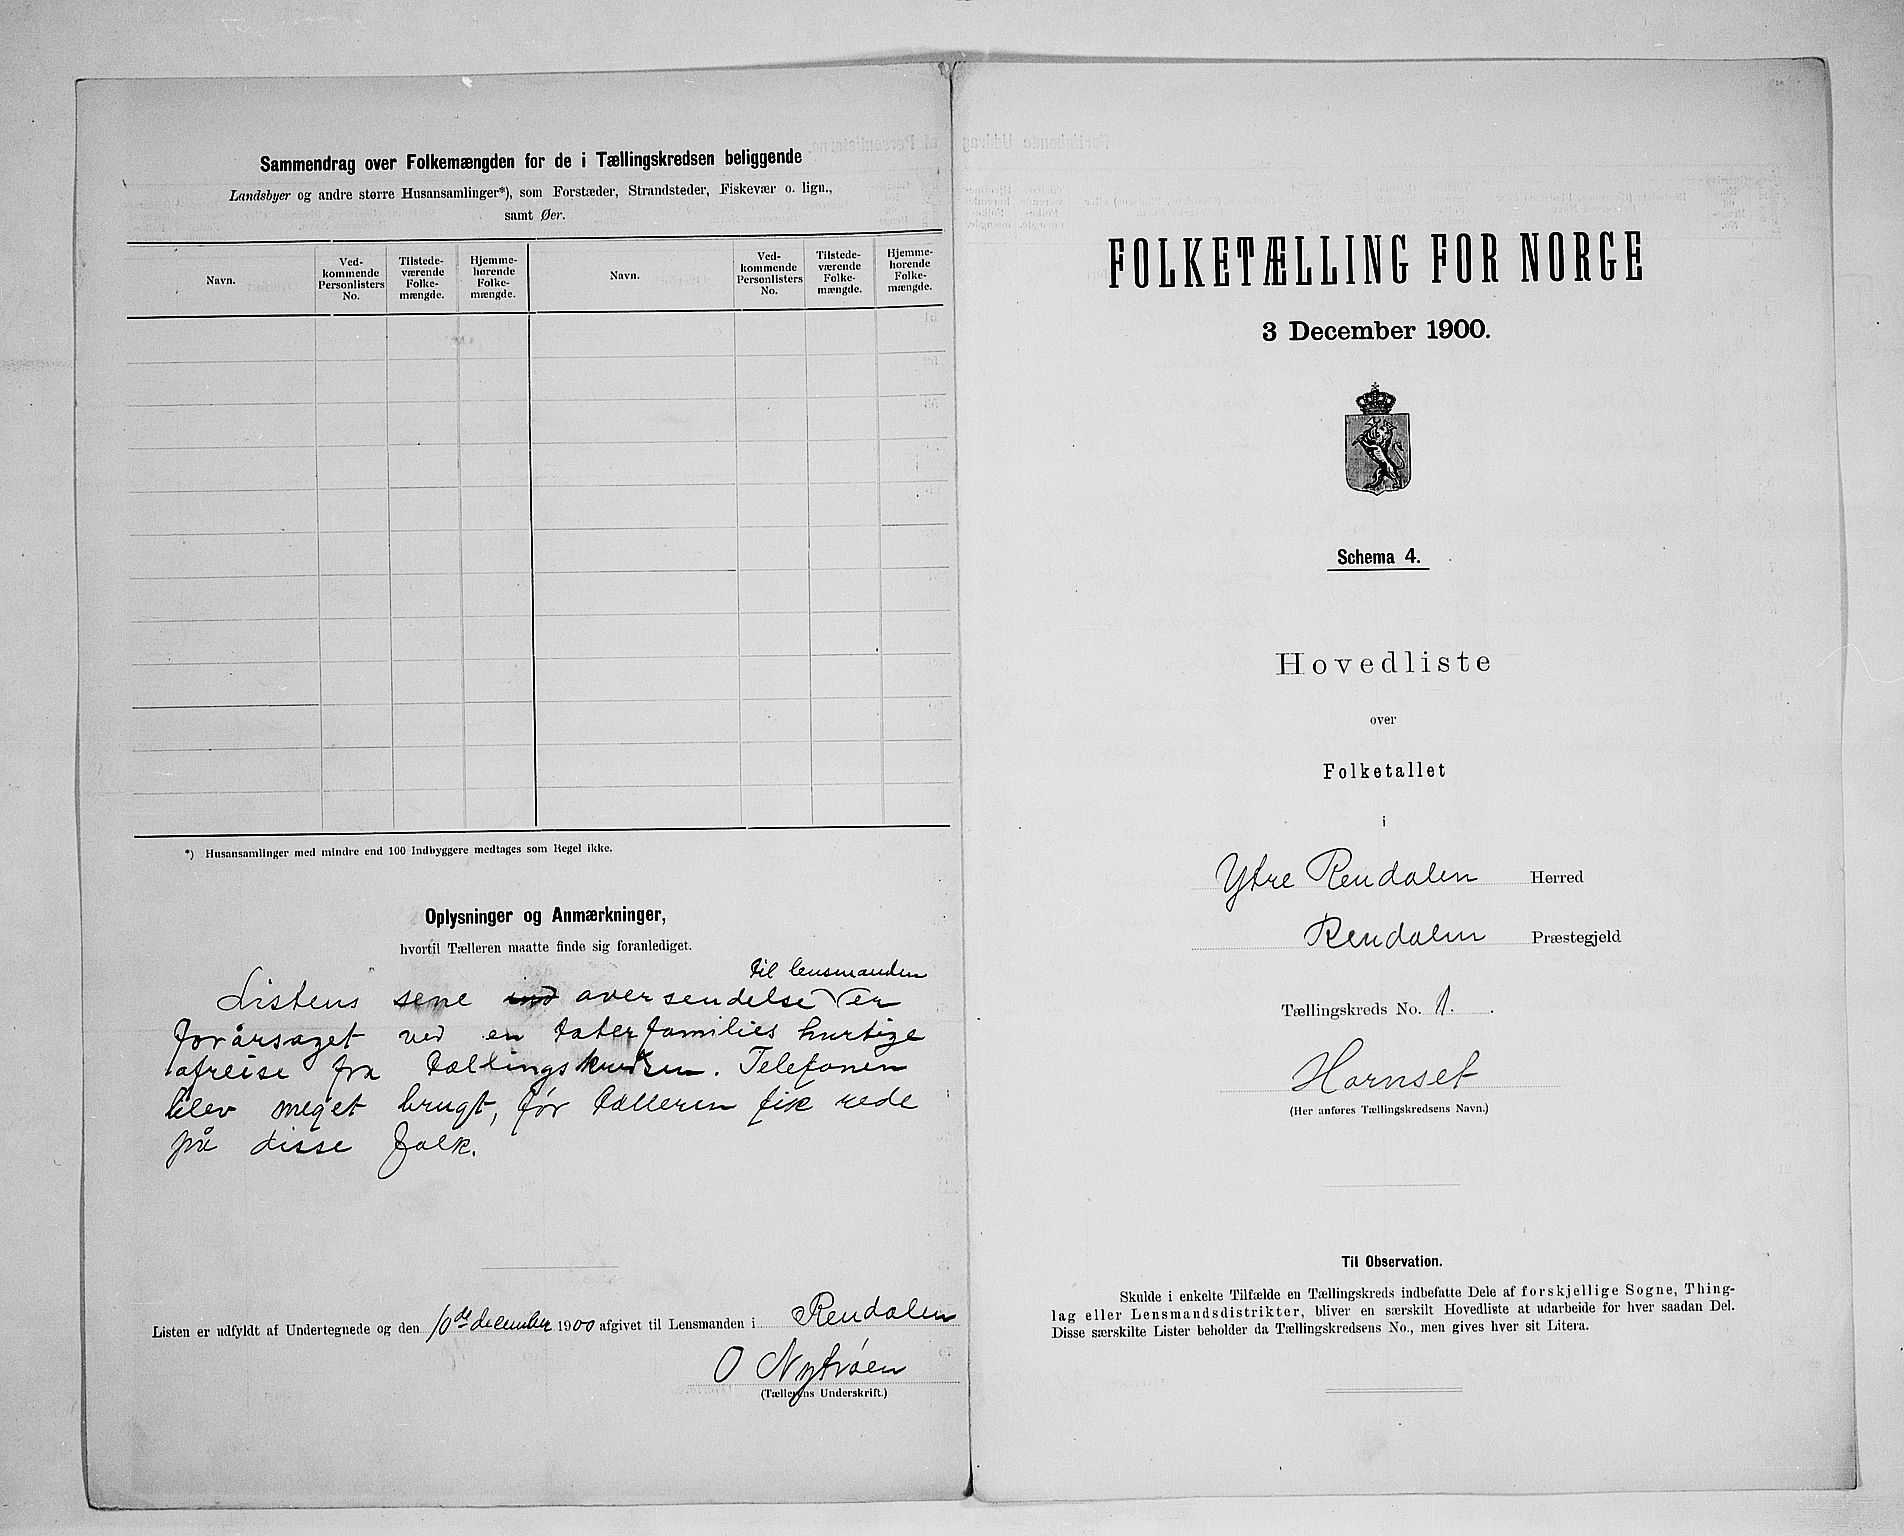 Sammendrag over Folkemængden for de i Tællingskredsen beliggende
Landsbyer og andre større Husansamlinger*), som Forstæder, Strandsteder, Fiskevær o. lign.,
samt Øer.
Navn.
Ved-
kommende
Personlisters
No.
Tilstede-
værende
Folke-
mængde.
Hjemme-
hørende
Folke-
mængde.
Navn.
Ved-
kommende
Personlisters
No.
Tilstede-
værende
Folke-
mængde.
Hjemme-
hørende
Folke-
mængde.
*) Husansamlinger med mindre end 100 Indbyggere medtages som Regel ikke.
Oplysninger og Anmærkninger,
hvortil Tælleren maatte finde sig foranlediget.
til lensmanden
Listens sene ind oversendelse er
forårsaget ved en taterfamilies hurtige
afreise fra tællingskredsen. Telefonen
blev meget brugt, før tælleren fik rede
på disse folk.
Listen er udfyldt af Undertegnede og den 10de december 1900 afgivet til Lensmanden i Rendalen
O Nytrøen
(Tællerens Underskrift.)
FOLKETÆLLING FOR NORGE
3 December 1900.
Schema 4.
Hovedliste
over
Folketallet
i
Ytre Rendalen Herred
Rendalen Præstegjeld
Tællingskreds No. 1.
Hornset
(Her anføres Tællingskredsens Navn.)
Til Observation.
Skulde i enkelte Tilfælde en Tællingskreds indbefatte Dele af forskjellige Sogne, Thing-
lag eller Lensmandsdistrikter, bliver en særskilt Hovedliste at udarbeide for hver saadan Del.
Disse særskilte Lister beholder da Tællingskredsens No., men gives hver sit Litera.